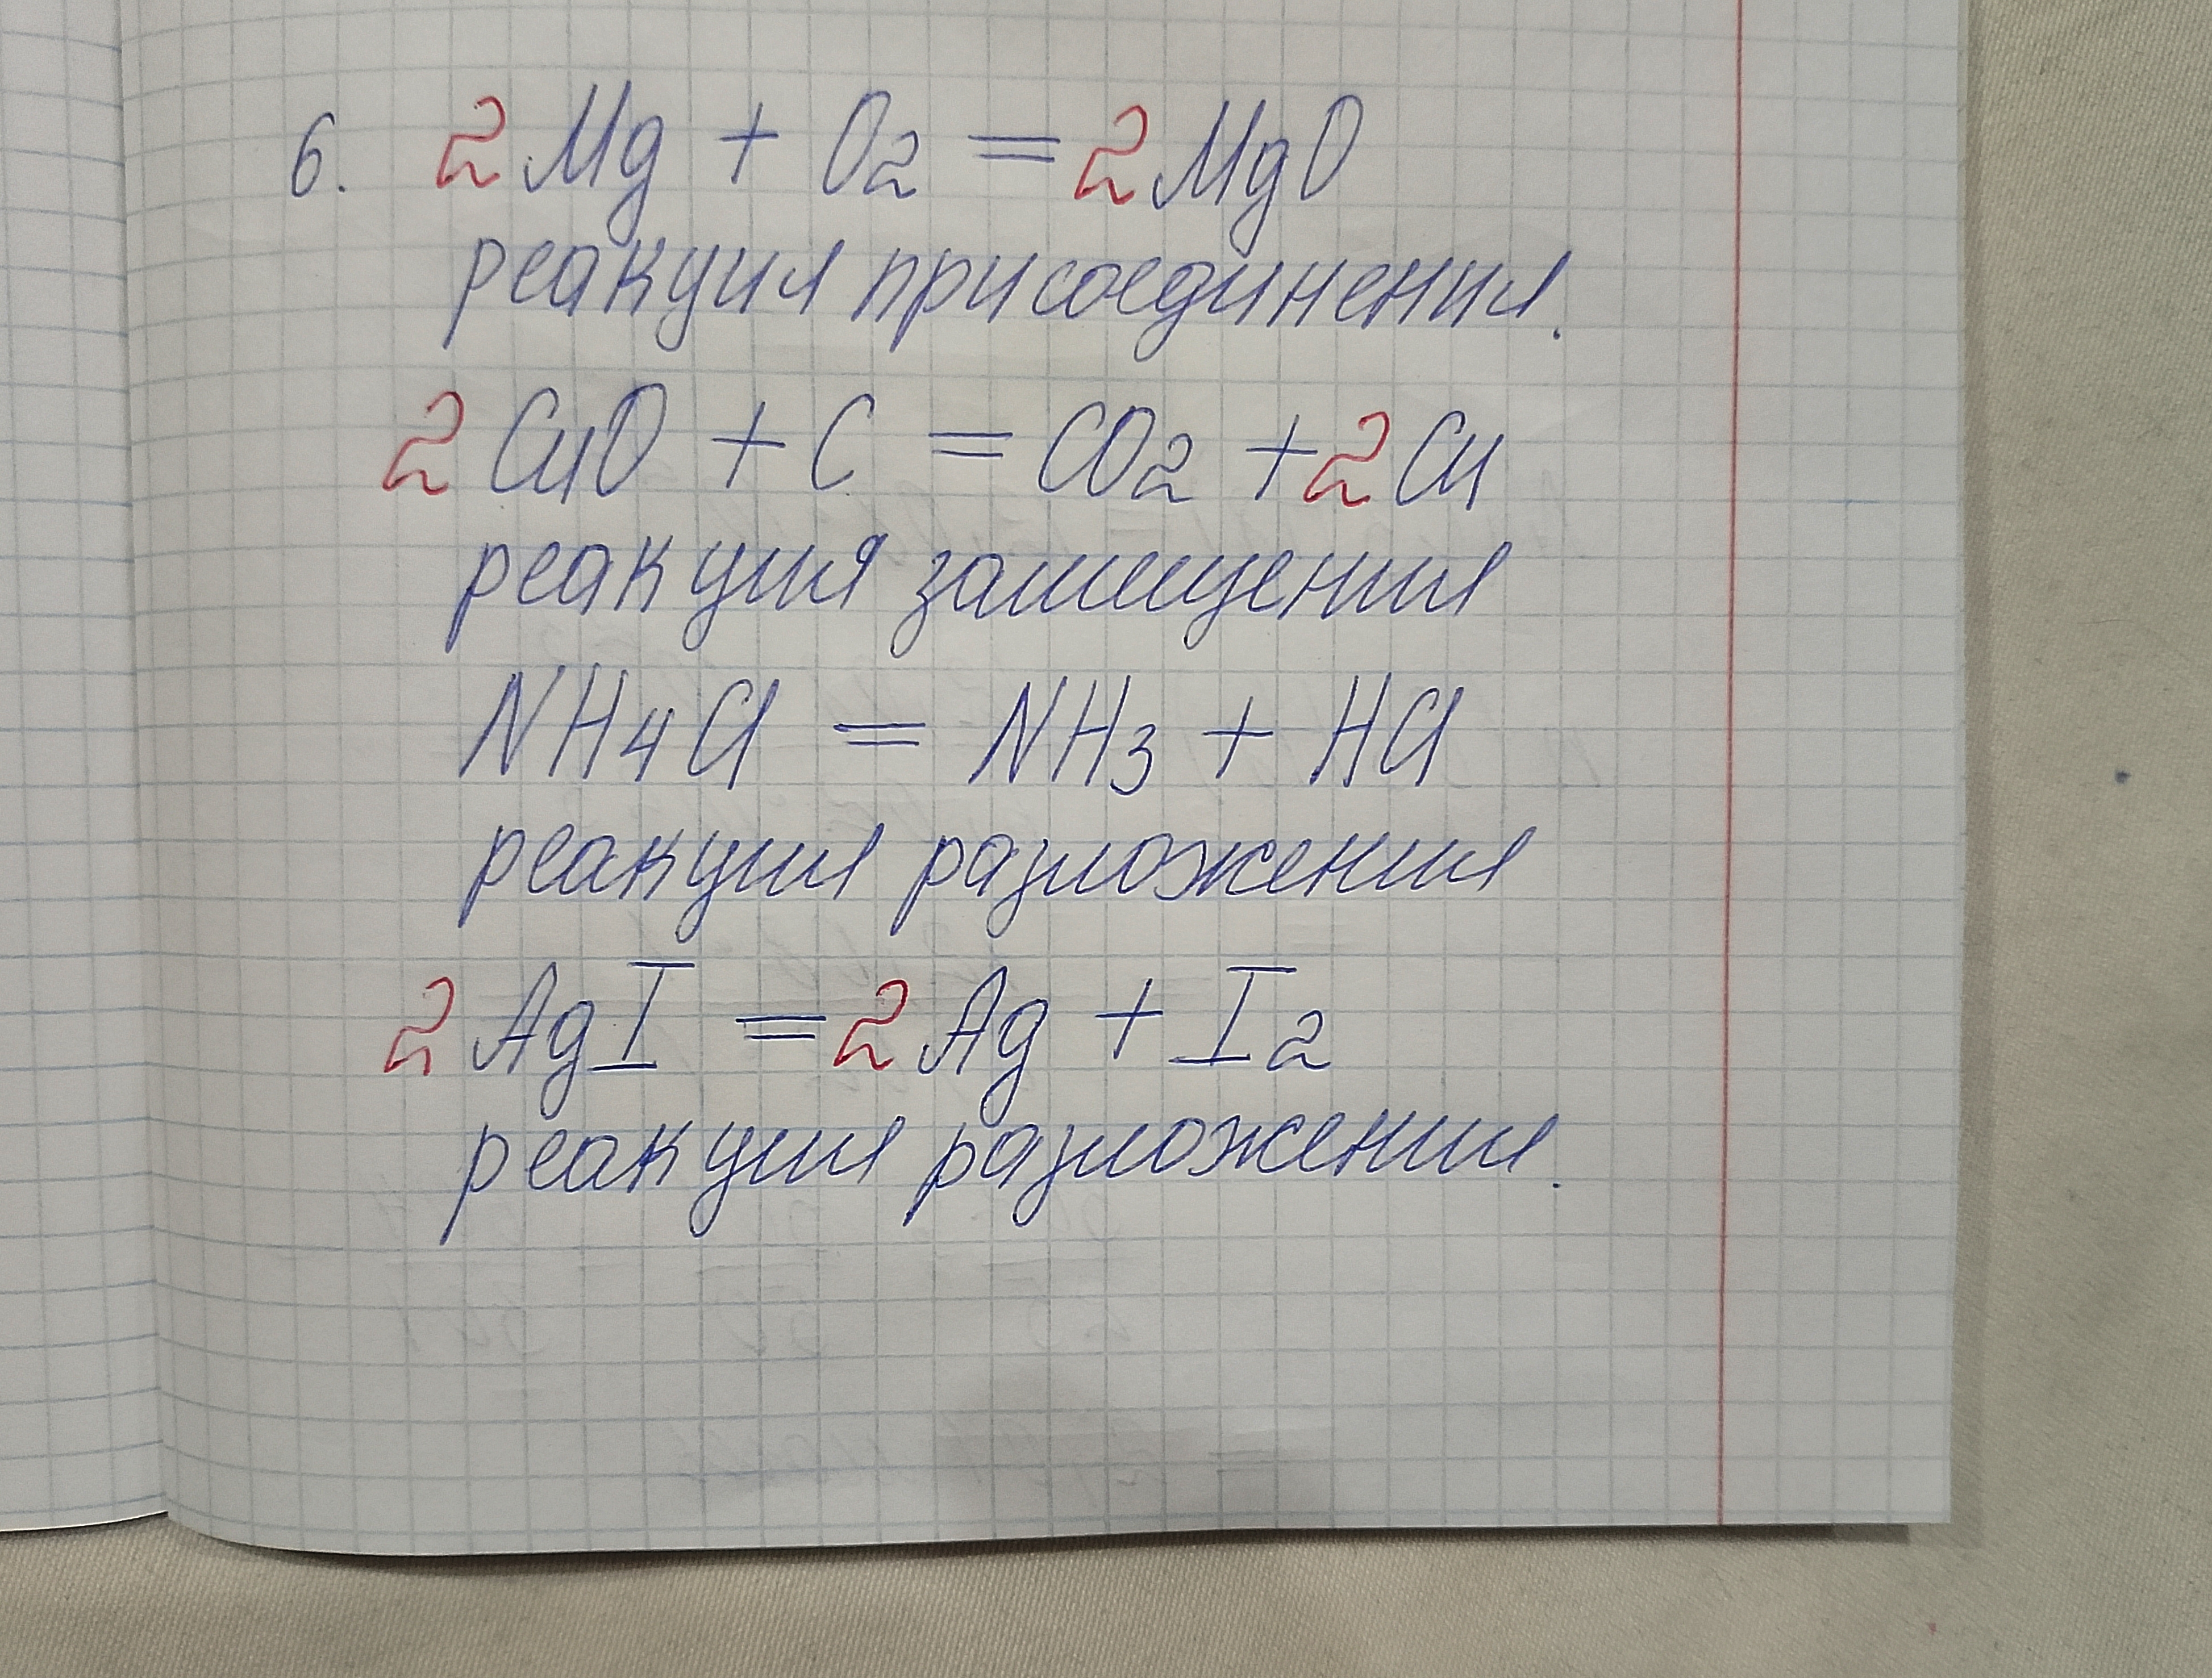 6. 2Mg + O2 = 2MgO
реакция присоединения.
2CuO + C = CO2 + 2Cu
реакция замещения
NH4Cl = NH3 + HCl
реакция разложения
2AgI = 2Ag + I2
реакция разложения.